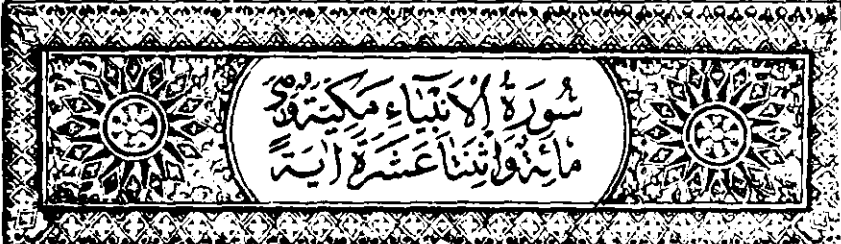 سُورَةُ الْاَنْبِيَاءِ مَكِّيَّةٌ وَّهِيَ
مِائَةٌ وَاثْنَتَا عَشَرَةَ اٰيَةً